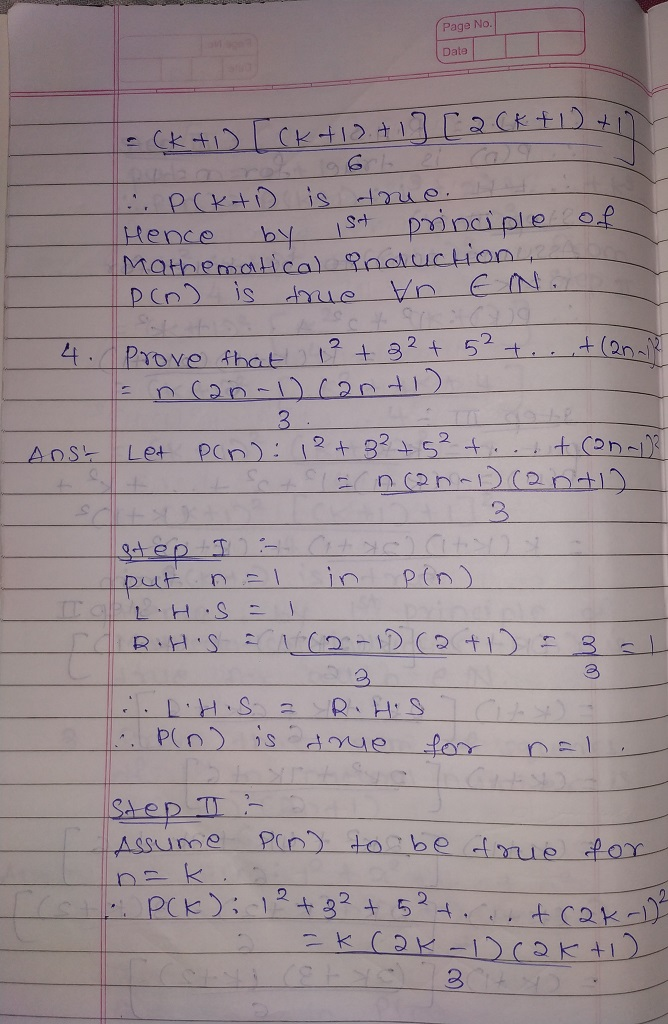 Page No.
Date
= (k+1) [(k+1)+1] [2(k+1)+1]
6
∴ P(k+1) is true.
Hence by 1st principle of
Mathematical Induction,
P(n) is true ∀n ∈ N.
4. Prove that 1² + 3² + 5² + ... + (2n-1)²
= n(2n-1)(2n+1)
3.
Ans:- Let P(n): 1² + 3² + 5² + ... + (2n-1)²
= n(2n-1)(2n+1)
3
Step I :-
put n = 1 in P(n)
L.H.S = 1
R.H.S = 1(2-1)(2+1) = 3 = 1
3 3
∴ L.H.S = R.H.S
∴ P(n) is true for n=1.
Step II :-
Assume P(n) to be true for
n = k.
∴ P(k): 1² + 3² + 5² + ... + (2k-1)²
= k(2k-1)(2k+1)
3